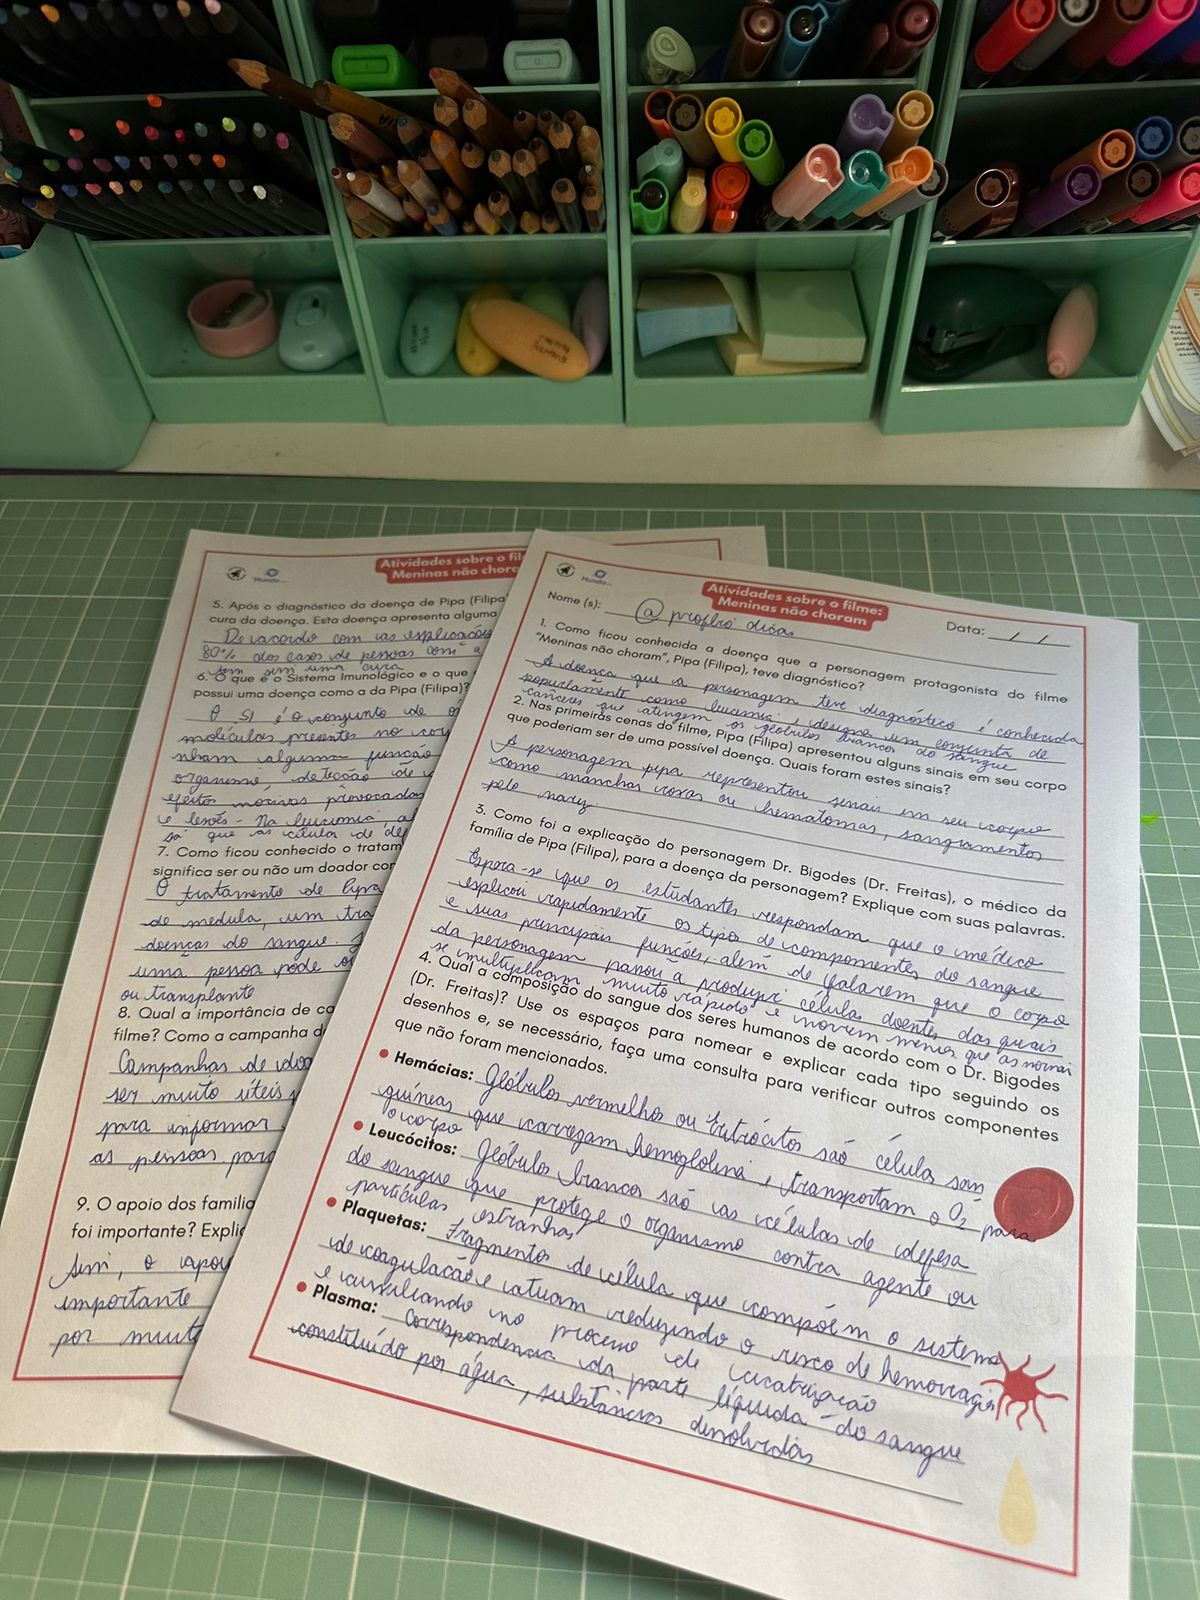 Atividades sobre o fil
Meninas não chora
Mundo...
5. Após o diagnóstico da doença de Pipa (Filipa
cura da doença. Esta doença apresenta alguma
De acordo com as explicações
80% dos casos de pessoas com a
tem sim uma cura
6. O que é o Sistema Imunológico e o que
possui uma doença como a da Pipa (Filipa)?
O SI é o conjunto de ór
moléculas presentes no cor
nham alguma função
organismo, detecção de
efeitos nocivos provocadas
e lesões - Na leucemia, a
que as célula de def
7. Como ficou conhecido o tratam
significa ser ou não um doador com
O tratamento de Pipa
de medula, um tra
doenças do sangue.
uma pessoa pode
ou transplante
8. Qual a importância de ca
filme? Como a campanha d
Campanhas de doa
ser muito úteis
para informar
as pessoas para
9. O apoio dos familia
foi importante? Explic
Sim, o apoi
importante
por muit
Mundo...
Atividades sobre o filme:
Meninas não choram
Nome (s): @profbio dicas
Data: __/__/__
1. Como ficou conhecida a doença que a personagem protagonista do filme
"Meninas não choram", Pipa (Filipa), teve diagnóstico?
A doença que a personagem teve diagnóstico é conhecida
popularmente como leucemia, designa um conjunto de
cânceres que atingem os glóbulos brancos do sangue
2. Nas primeiras cenas do filme, Pipa (Filipa) apresentou alguns sinais em seu corpo
que poderiam ser de uma possível doença. Quais foram estes sinais?
A personagem pipa representou sinais em seu corpo
como manchas roxas ou hematomas, sangramentos
pelo nariz.
3. Como foi a explicação do personagem Dr. Bigodes (Dr. Freitas), o médico da
família de Pipa (Filipa), para a doença da personagem? Explique com suas palavras.
Espera-se que os estudantes respondam que o médico
explicou rapidamente os tipos de componentes do sangue
e suas principais funções, além de falarem que o corpo
da personagem passou a produzir célula doentes das quais
se multiplicam muito rápido e morrem menos que as normai
4. Qual a composição do sangue dos seres humanos de acordo com o Dr. Bigodes
(Dr. Freitas)? Use os espaços para nomear e explicar cada tipo seguindo os
desenhos e, se necessário, faça uma consulta para verificar outros componentes
que não foram mencionados.
• Hemácias: Glóbulos vermelhos ou Eritrócitos são célula san
guíneas que carregam hemoglobina, transportam o O2 para
o corpo
• Leucócitos: Glóbulos brancos são as células de defesa
do sangue que protege o organismo contra agente ou
partículas estranhas
• Plaquetas: Fragmentos de célula que compõem o sistema
de coagulação e atuam reduzindo o risco de hemorragias
e auxiliando no processo de cicatrização
• Plasma: Correspondencia da parte líquida do sangue
constituído por água, substâncias dissolvidas